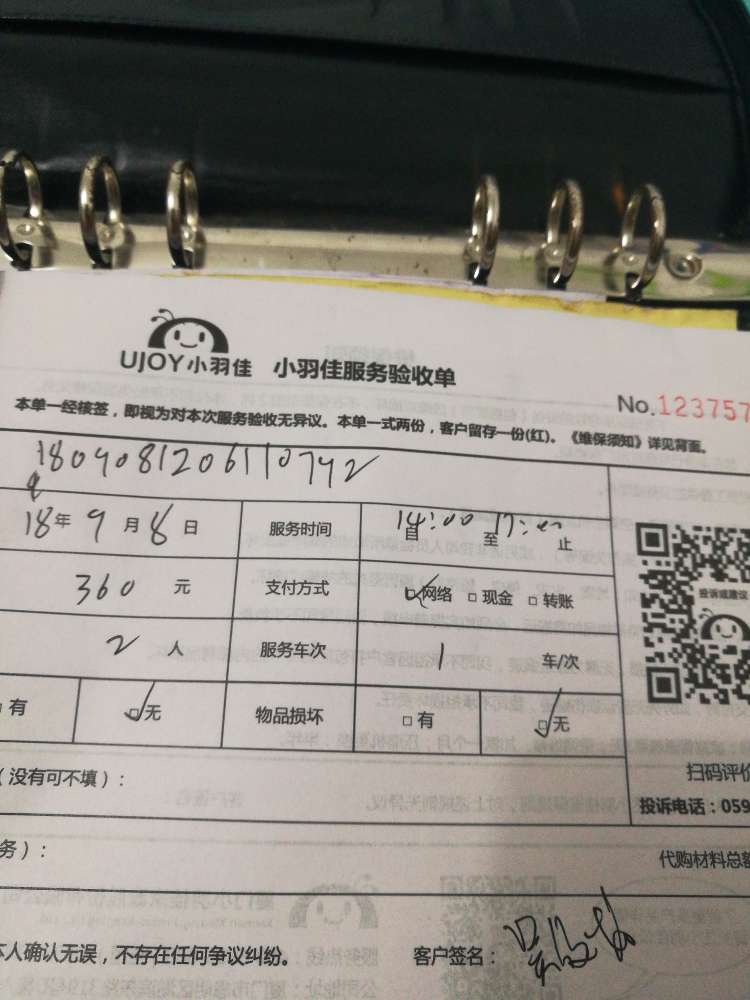 UJOY小羽佳 小羽佳服务验收单
No.123757
本单一经核签，即视为对本次服务验收无异议。本单一式两份，客户留存一份(红)。《维保须知》详见背面。
18年9月8日 服务时间 14:00 自 至 17:00 止
360 元 支付方式 ☑网络 □现金 □转账
投诉或建议
2 人 服务车次 1 车/次
有 ☑无 物品损坏 □有 ☑无
扫码评价
（没有可不填）：
投诉电话：059
务）：
代购材料总额
本人确认无误，不存在任何争议纠纷。 客户签名：